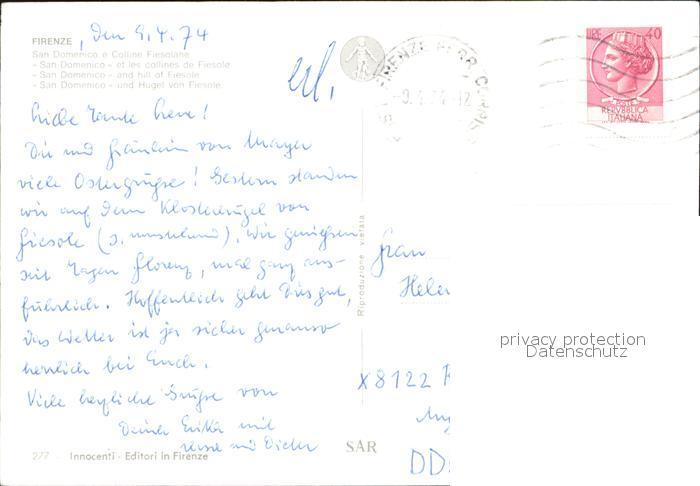 FIRENZE, den 9.4.74
San Domenico e Colline Fiesolane
- San Domenico - et les collines de Fiesole
- San Domenico - and hill of Fiesole
- San Domenico - und Hügel von Fiesole
erl.
Liebe Tante Lene!
Dir und Fräulein von Mayer
viele Ostergrüsse! Gestern standen
wir auf dem Klosterhügel von
Fiesole (s. umstehend). Wir geniessen
seit Tagen Florenz, mal ganz aus-
führlich. Hoffentlich geht Dirs gut,
das Wetter ist ja sicher genauso
herrlich bei Euch.
Viele herzliche Grüsse von
Deiner Erika mit
und Dieter
277 - Innocenti - Editori in Firenze
SAR
Riproduzione vietata
FIRENZE FERR. CORRISP
-9.4.74-12
LIRE 40
POSTE
REPVBBLICA
ITALIANA
Frau
Helen
X8122 R
DD
privacy protection
Datenschutz